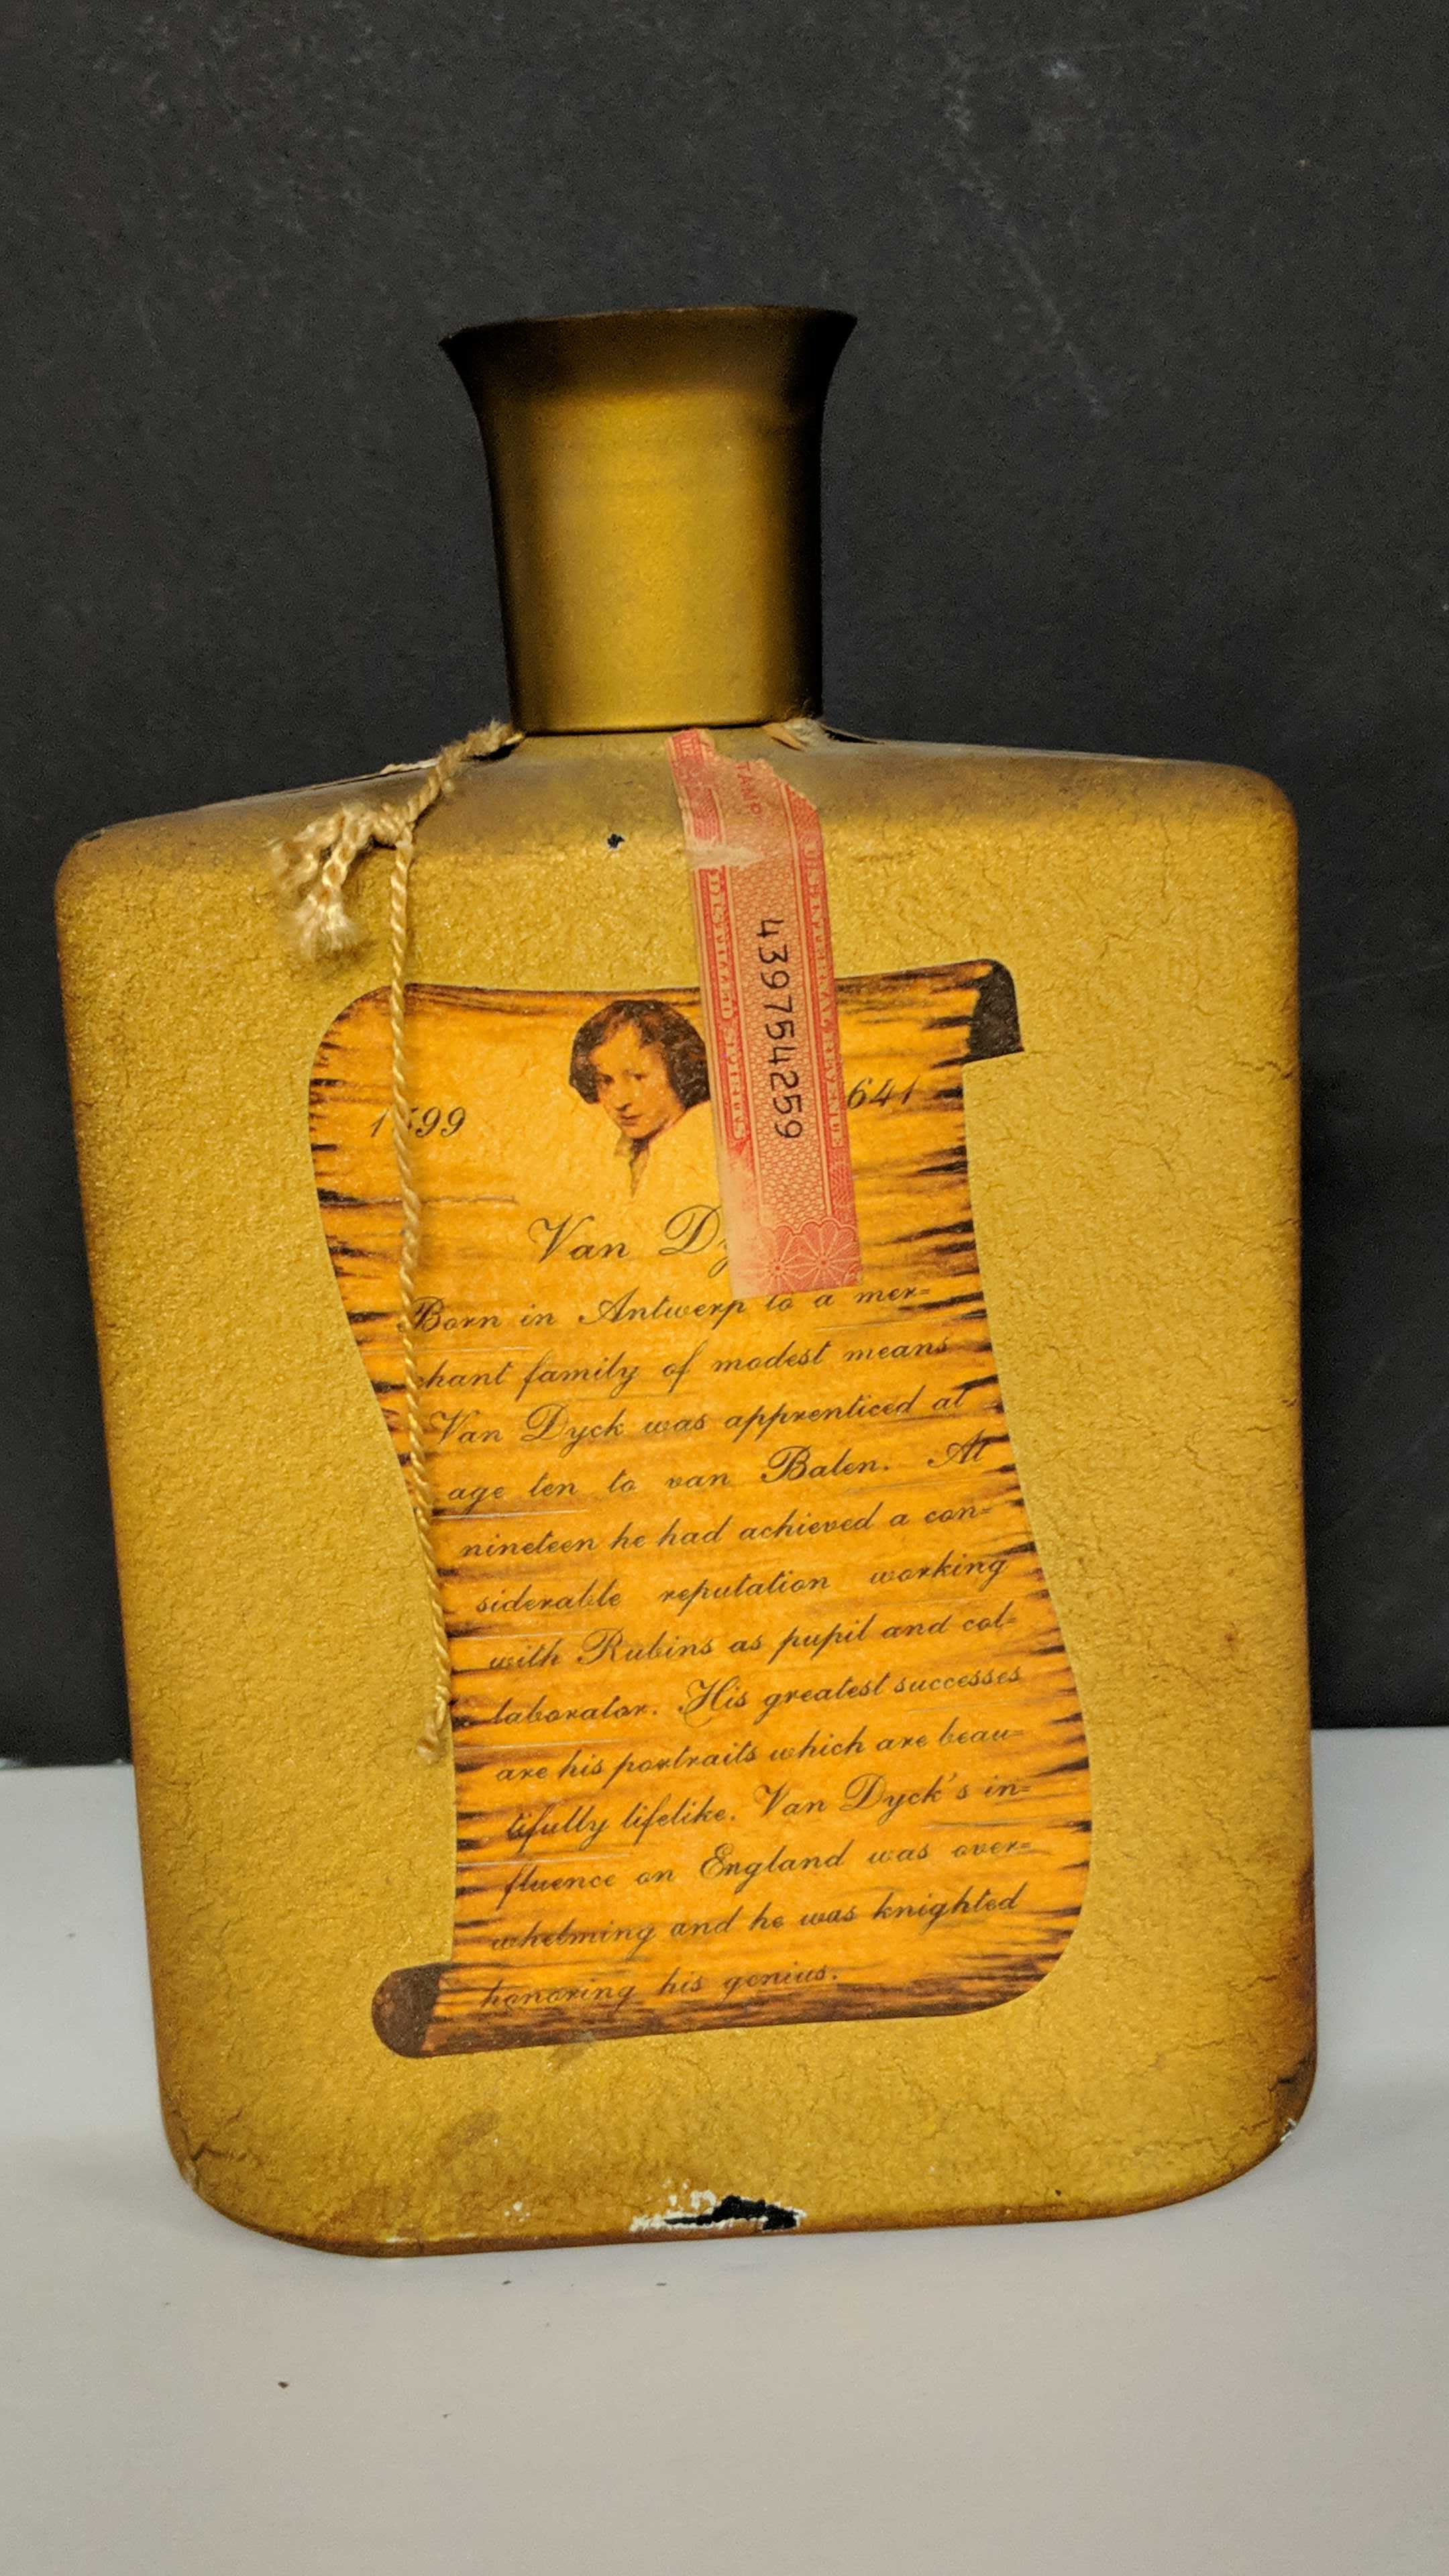 439754259
1599
641
Van Dy
Born in Antwerp to a mer=
chant family of modest means
Van Dyck was apprenticed at
age ten to van Balen. At
nineteen he had achieved a con=
siderable reputation working
with Rubins as pupil and col=
laborator. His greatest successes
are his portraits which are beau=
tifully lifelike. Van Dyck's in=
fluence on England was over=
whelming and he was knighted
honoring his genius.